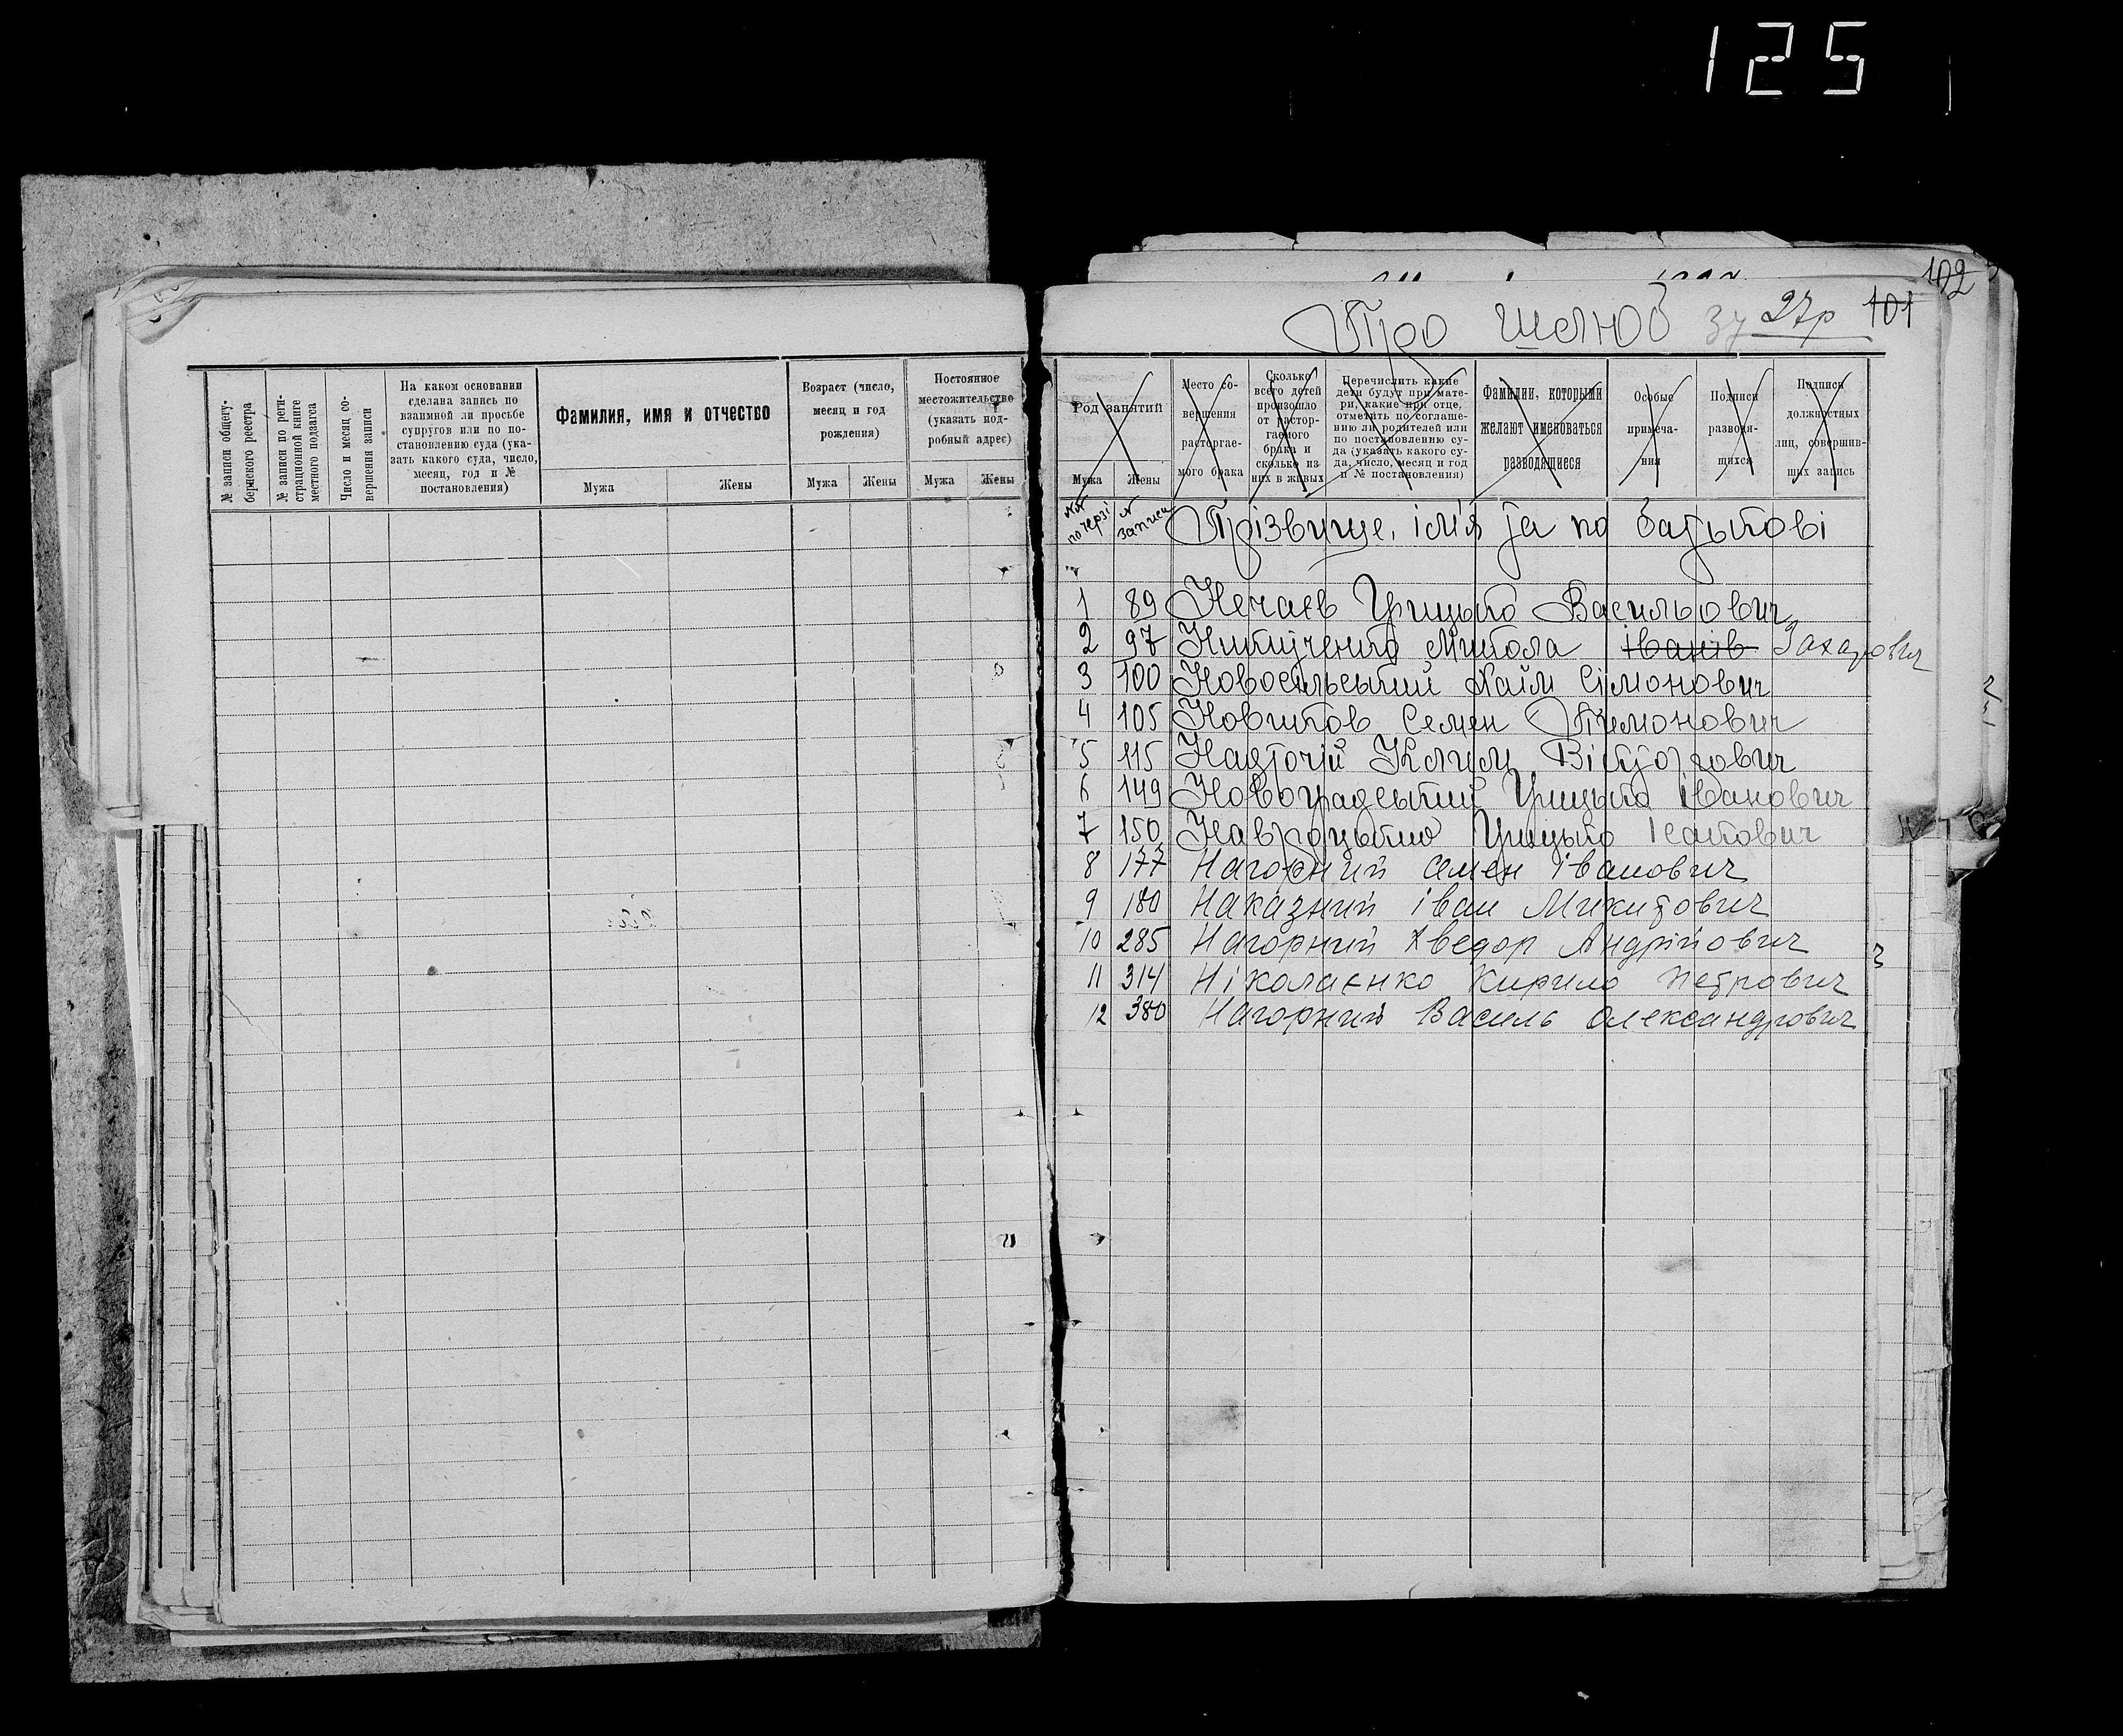 125
102
Про шлюб за 27р 101
№ записи общегубернского реестра
№ записи по регистрационной книге местного подзагса
Число и месяц совершения записи
На каком основании
сделана запись по
взаимной ли просьбе
супругов или по по-
становлению суда (ука-
зать какого суда, число,
месяц, год и №
постановления)
Фамилия, имя и отчество
Мужа Жены
Возраст (число,
месяц и год
рождения)
Мужа Жены
Постоянное
местожительство
(указать под-
робный адрес)
Мужа Жены
Род занятий
Мужа Жены
Место со-
вершения
расторгае-
мого брака
Сколько
всего детей
произошло
от растор-
гаемого
брака и
сколько из
них в живых
Перечислить какие
дети будут при мате-
ри, какие при отце,
отметить по соглаше-
нию ли родителей или
по постановлению су-
да (указать какого су-
да, число, месяц и год
и № постановления)
Фамилии, которыми
желают именоваться
разводящиеся
Особые
примеча-
ния
Подписи
разводя-
щихся
Подписи
должностных
лиц, совершив-
ших запись
№№ по черзі № записи Прізвище, ім'я та по батькові
1 89 Нечаєв Грицько Васильович
2 97 Никиченко Микола Іванів Захарович
3 100 Новосельський Хаїм Сімонович
4 105 Новиков Семен Пимонович
5 115 Надточій Клим Вікторович
6 149 Новоградський Грицько Іванович
7 150 Навроцький Грицько Ісакович
8 177 Нагорний Семен Іванович
9 180 Наказний Іван Микитович
10 285 Нагорний Хведор Андрійович
11 314 Ніколаєнко Кирило Петрович
12 380 Нагорний Василь Олександрович